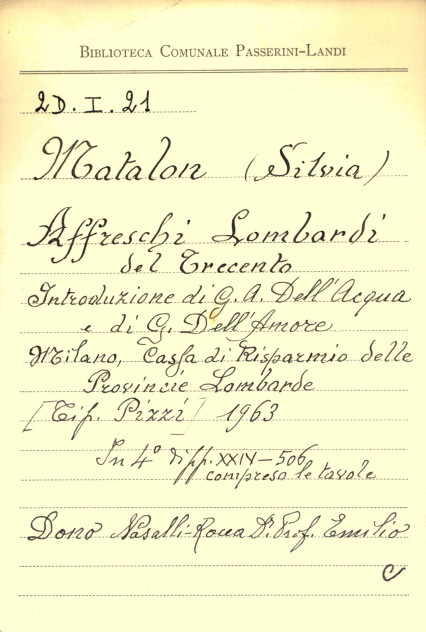 BIBLIOTECA COMUNALE PASSERINI-LANDI
2D. I. 21
Matalon (Silvia)
Affreschi Lombardi
del Trecento
Introduzione di G. A. Dell'Acqua
e di G. Dell'Amore
Milano, Cassa di Risparmio delle
Provincie Lombarde
[Tip. Pizzi] 1963
In 4° di pp. XXIV-506
compreso le tavole
Dono Nasalli-Rocca Dr. Prof. Emilio
C